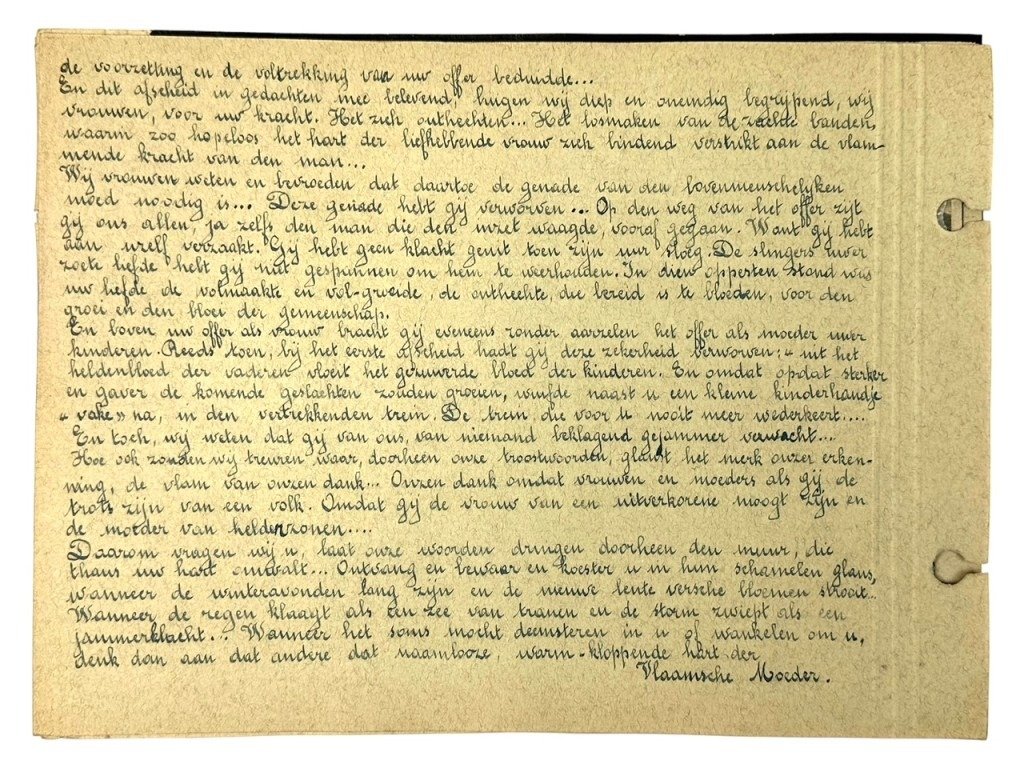 de voorzetting en de voltrekking van uw offer beduidde...
En dit afscheid in gedachten mee belevend, buigen wij diep en oneindig begrijpend, wij
vrouwen, voor uw kracht. Het zich onthechten... Het losmaken van de zachte banden,
waarin zoo hopeloos het hart der liefhebbende vrouw zich bindend verstrikt aan de vlam-
mende kracht van den man...
Wij vrouwen weten en bevroeden dat daartoe de genade van den bovenmenschelijken
moed noodig is... Deze genade hebt gij verworven... Op den weg van het offer zijt
gij ons allen, ja zelfs den man die den inzet waagde, vooraf gegaan. Want gij hebt
aan uzelf verzaakt. Gij hebt geen klacht geuit toen zijn uur sloeg. De slingers uwer
zoete liefde hebt gij niet gesponnen om hem te weerhouden. In dien oppersten stond was
uw liefde de volmaakte en vol-groeide, de onthechte, die bereid is te bloeden, voor den
groei en den bloei der gemeenschap.
En boven uw offer als vrouw bracht gij eveneens zonder aarzelen het offer als moeder uwer
kinderen. Reeds toen, bij het eerste afscheid hadt gij deze zekerheid verworven: " uit het
heldenbloed der vaderen vloeit het gezuiverde bloed der kinderen. En omdat opdat sterker
en gaver de komende geslachten zouden groeien, wuifde naast u een kleine kinderhandje
" vake" na, in den vertrekkenden trein. De trein, die voor u nooit meer wederkeert....
En toch, wij weten dat gij van ons, van niemand beklagend gejammer verwacht...
Hoe ook zouden wij treuren waar, doorheen onze troostwoorden, glanst het merk onzer erken-
ning, de vlam van onzen dank... Onzen dank omdat vrouwen en moeders als gij de
trots zijn van een volk. Omdat gij de vrouw van een uitverkorene moogt zijn en
de moeder van heldenzonen....
Daarom vragen wij u, laat onze woorden dringen doorheen den muur, die
thans uw hart omwalt... Ontvang en bewaar en koester u in hun schamelen glans,
wanneer de winteravonden lang zijn en de nieuwe lente versche bloemen strooit...
Wanneer de regen klaagt als een zee van tranen en de storm zwiept als een
jammerklacht... Wanneer het soms mocht deemsteren in u of wankelen om u,
denk dan aan dat andere dat naamlooze, warm-kloppende hart der
Vlaamsche Moeder.